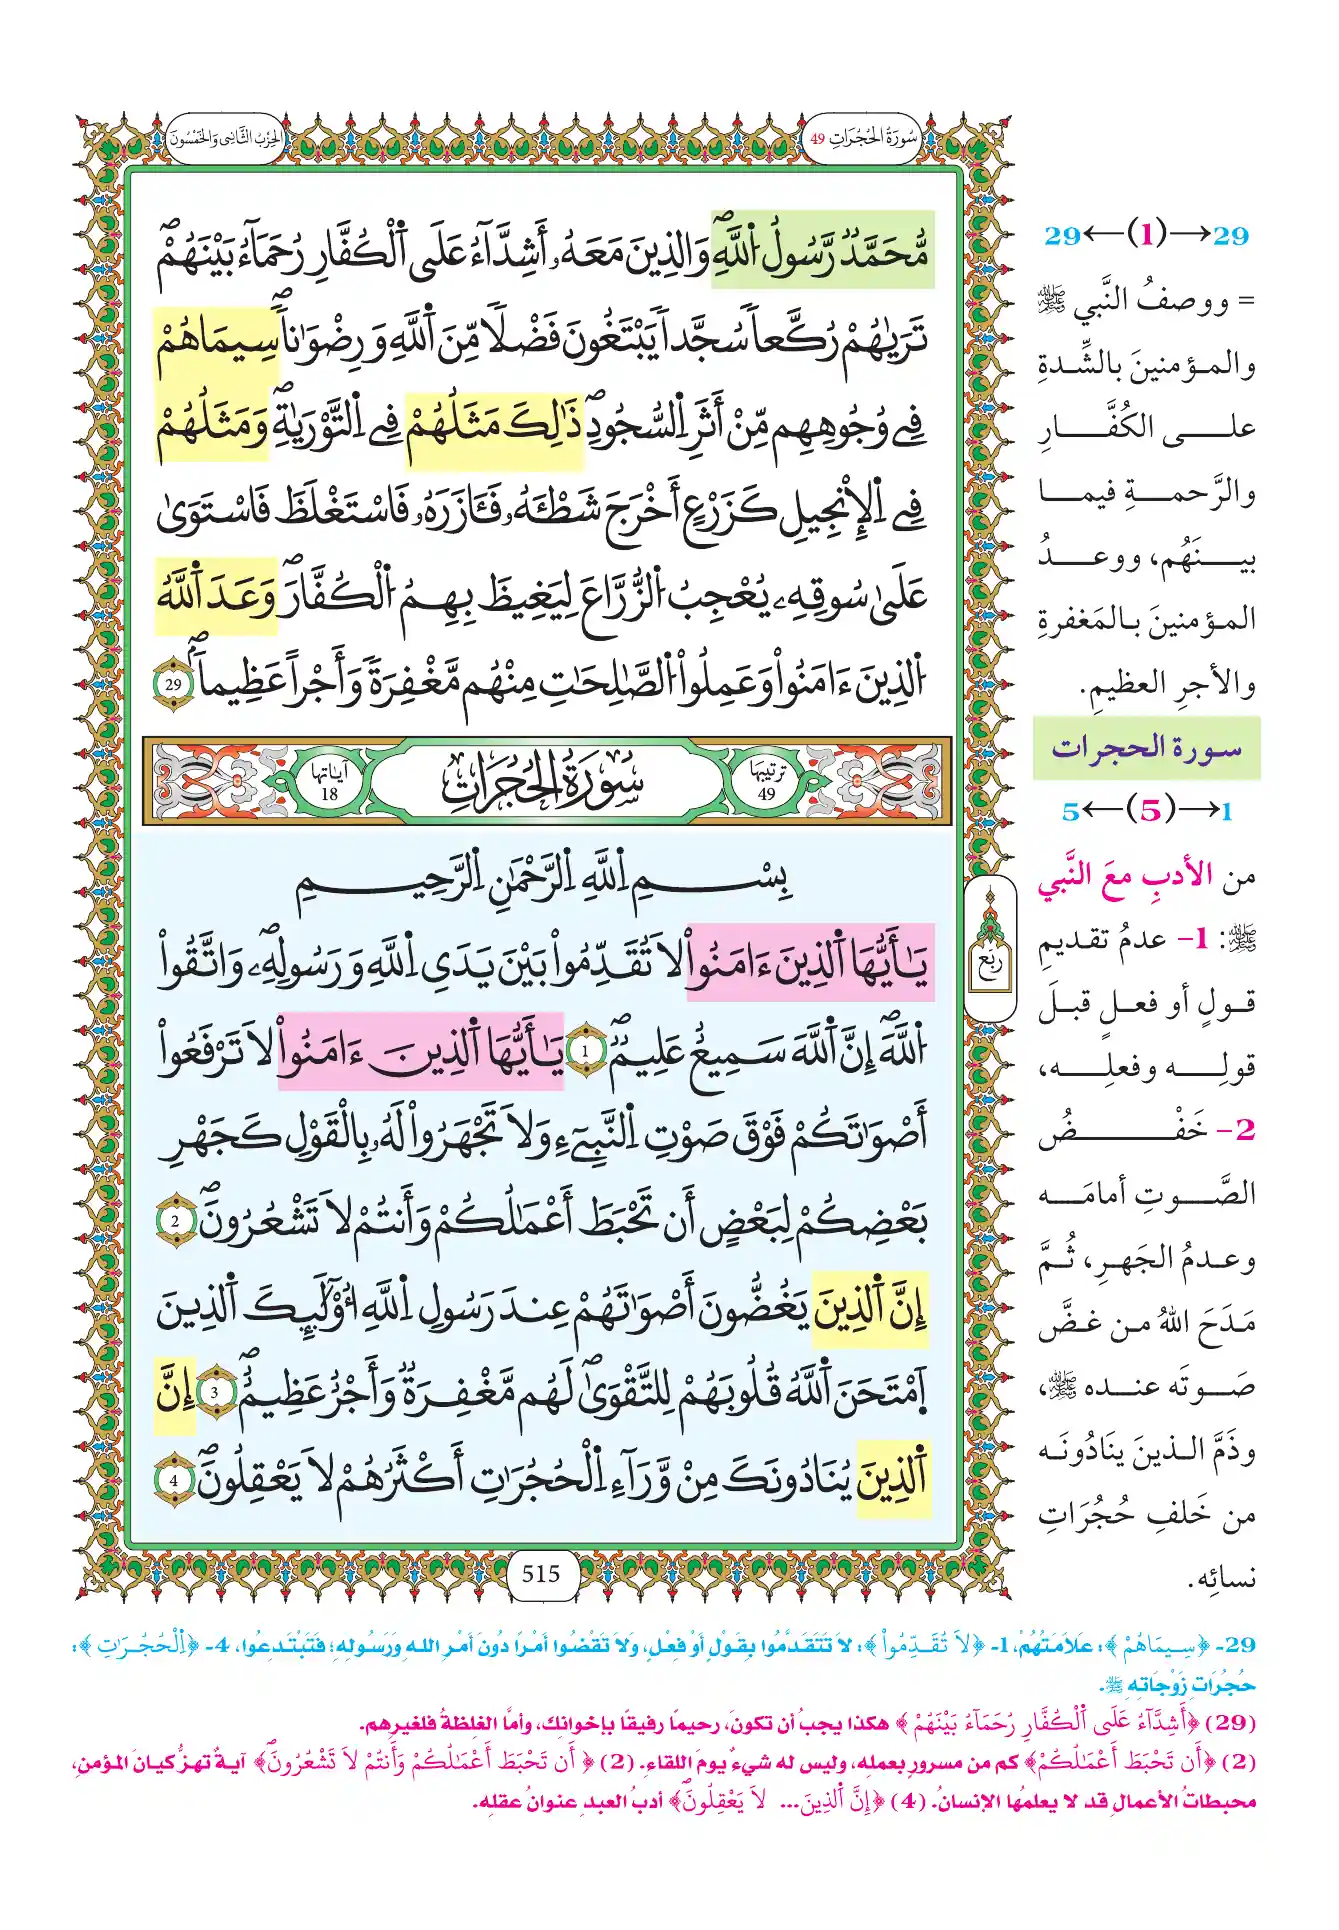 سُورَةُ الْحُجُرَاتِ 49
الحِزْبُ الثَّانِي وَالخَمْسُونَ
مُّحَمَّدٞ رَّسُولُ اُ۬للَّهِۖ وَالذِينَ مَعَهُۥٓ أَشِدَّآءُ عَلَى اَ۬لْكُفّ۪ارِ رُحَمَآءُ بَيْنَهُمْۖ
تَر۪يٰهُمْ رُكَّعاٗ سُجَّداٗ يَبْتَغُونَ فَضْلاٗ مِّنَ اَ۬للَّهِ وَرِضْوَٰناٗۖ سِيمَاهُمْ
فِے وُجُوهِهِم مِّنْ أَثَرِ اِ۬لسُّجُودِۖ ذَٰلِكَ مَثَلُهُمْ فِے اِ۬لتَّوْر۪يٰةِۖ وَمَثَلُهُمْ
فِے اِ۬لِانجِيلِ كَزَرْعٍ أَخْرَجَ شَطْـَٔهُۥ فَـَٔازَرَهُۥ فَاسْتَغْلَظَ فَاسْتَوَىٰ
عَلَىٰ سُوقِهِۦ يُعْجِبُ اُ۬لزُّرَّاعَ لِيَغِيظَ بِهِمُ اُ۬لْكُفَّارَۖ وَعَدَ اَ۬للَّهُ
اُ۬لذِينَ ءَامَنُواْ وَعَمِلُواْ اُ۬لصَّٰلِحَٰتِ مِنْهُم مَّغْفِرَةٗ وَأَجْراً عَظِيماٗۖ 29
ترتيبها 49
سُورَةُ الحُجُرَاتِ
آياتها 18
بِسْمِ اِ۬للَّهِ اِ۬لرَّحْمَٰنِ اِ۬لرَّحِيمِ
يَٰٓأَيُّهَا اَ۬لذِينَ ءَامَنُواْ لَا تُقَدِّمُواْ بَيْنَ يَدَيِ اِ۬للَّهِ وَرَسُولِهِۦۖ وَاتَّقُواْ
اُ۬للَّهَۖ إِنَّ اَ۬للَّهَ سَمِيعٌ عَلِيمٞۖ 1 يَٰٓأَيُّهَا اَ۬لذِينَ ءَامَنُواْ لَا تَرْفَعُواْ
أَصْوَٰتَكُمْ فَوْقَ صَوْتِ اِ۬لنَّبِےٓءِ وَلَا تَجْهَرُواْ لَهُۥ بِالْقَوْلِ كَجَهْرِ
بَعْضِكُمْ لِبَعْضٍ أَن تَحْبَطَ أَعْمَٰلُكُمْ وَأَنتُمْ لَا تَشْعُرُونَۖ 2
إِنَّ اَ۬لذِينَ يَغُضُّونَ أَصْوَٰتَهُمْ عِندَ رَسُولِ اِ۬للَّهِ أُوْلَٰٓئِكَ اَ۬لذِينَ
اَ۪مْتَحَنَ اَ۬للَّهُ قُلُوبَهُمْ لِلتَّقْوَىٰۖ لَهُم مَّغْفِرَةٞ وَأَجْرٌ عَظِيمٌۖ 3 إِنَّ
اَ۬لذِينَ يُنَادُونَكَ مِنْ وَّرَآءِ اِ۬لْحُجُرَٰتِ أَكْثَرُهُمْ لَا يَعْقِلُونَۖ 4
ربع
515
29←(1)→29
= ووصفُ النَّبي ﷺ
والمؤمنينَ بالشِّدةِ
على الكُفَّارِ
والرَّحمةِ فيما
بينَهُم، ووعدُ
المؤمنينَ بالمَغفرةِ
والأجرِ العظيمِ.
سورة الحجرات
5←(5)→1
من الأدبِ معَ النَّبي
ﷺ: 1- عدمُ تقديمِ
قولٍ أو فعلٍ قبلَ
قولِه وفعلِه،
2- خَفْضُ
الصَّوتِ أمامَه
وعدمُ الجَهرِ، ثُمَّ
مَدَحَ اللهُ من غضَّ
صَوتَه عنده ﷺ،
وذَمَّ الذينَ ينادُونَه
من خَلفِ حُجُرَاتِ
نسائِه.
29- ﴿سِيمَاهُمْ﴾: عَلَامَتُهُمْ، 1- ﴿لَا تُقَدِّمُواْ﴾: لَا تَتَقَدَّمُوا بِقَوْلٍ أَوْ فِعْلٍ، وَلَا تَقْضُوا أَمْرًا دُونَ أَمْرِ اللهِ وَرَسُولِهِ؛ فَتَبْتَدِعُوا، 4- ﴿اِ۬لْحُجُرَٰتِ﴾:
حُجُرَاتِ زَوْجَاتِهِ ﷺ.
(29) ﴿أَشِدَّآءُ عَلَى اَ۬لْكُفّ۪ارِ رُحَمَآءُ بَيْنَهُمْ﴾ هكذا يجبُ أن تكونَ، رحيمًا رفيقًا بإخوانِك، وأمَّا الغلظةُ فلغيرِهم.
(2) ﴿أَن تَحْبَطَ أَعْمَٰلُكُمْ﴾ كم من مسرورٍ بعملِه، وليس له شيءٌ يومَ اللقاءِ. (2) ﴿أَن تَحْبَطَ أَعْمَٰلُكُمْ وَأَنتُمْ لَا تَشْعُرُونَۖ﴾ آيةٌ تهزُّ كيانَ المؤمنِ،
محبطاتُ الأعمالِ قد لا يعلمُها الإنسانُ. (4) ﴿إِنَّ اَ۬لذِينَ... لَا يَعْقِلُونَۖ﴾ أدبُ العبدِ عنوانُ عقلِه.